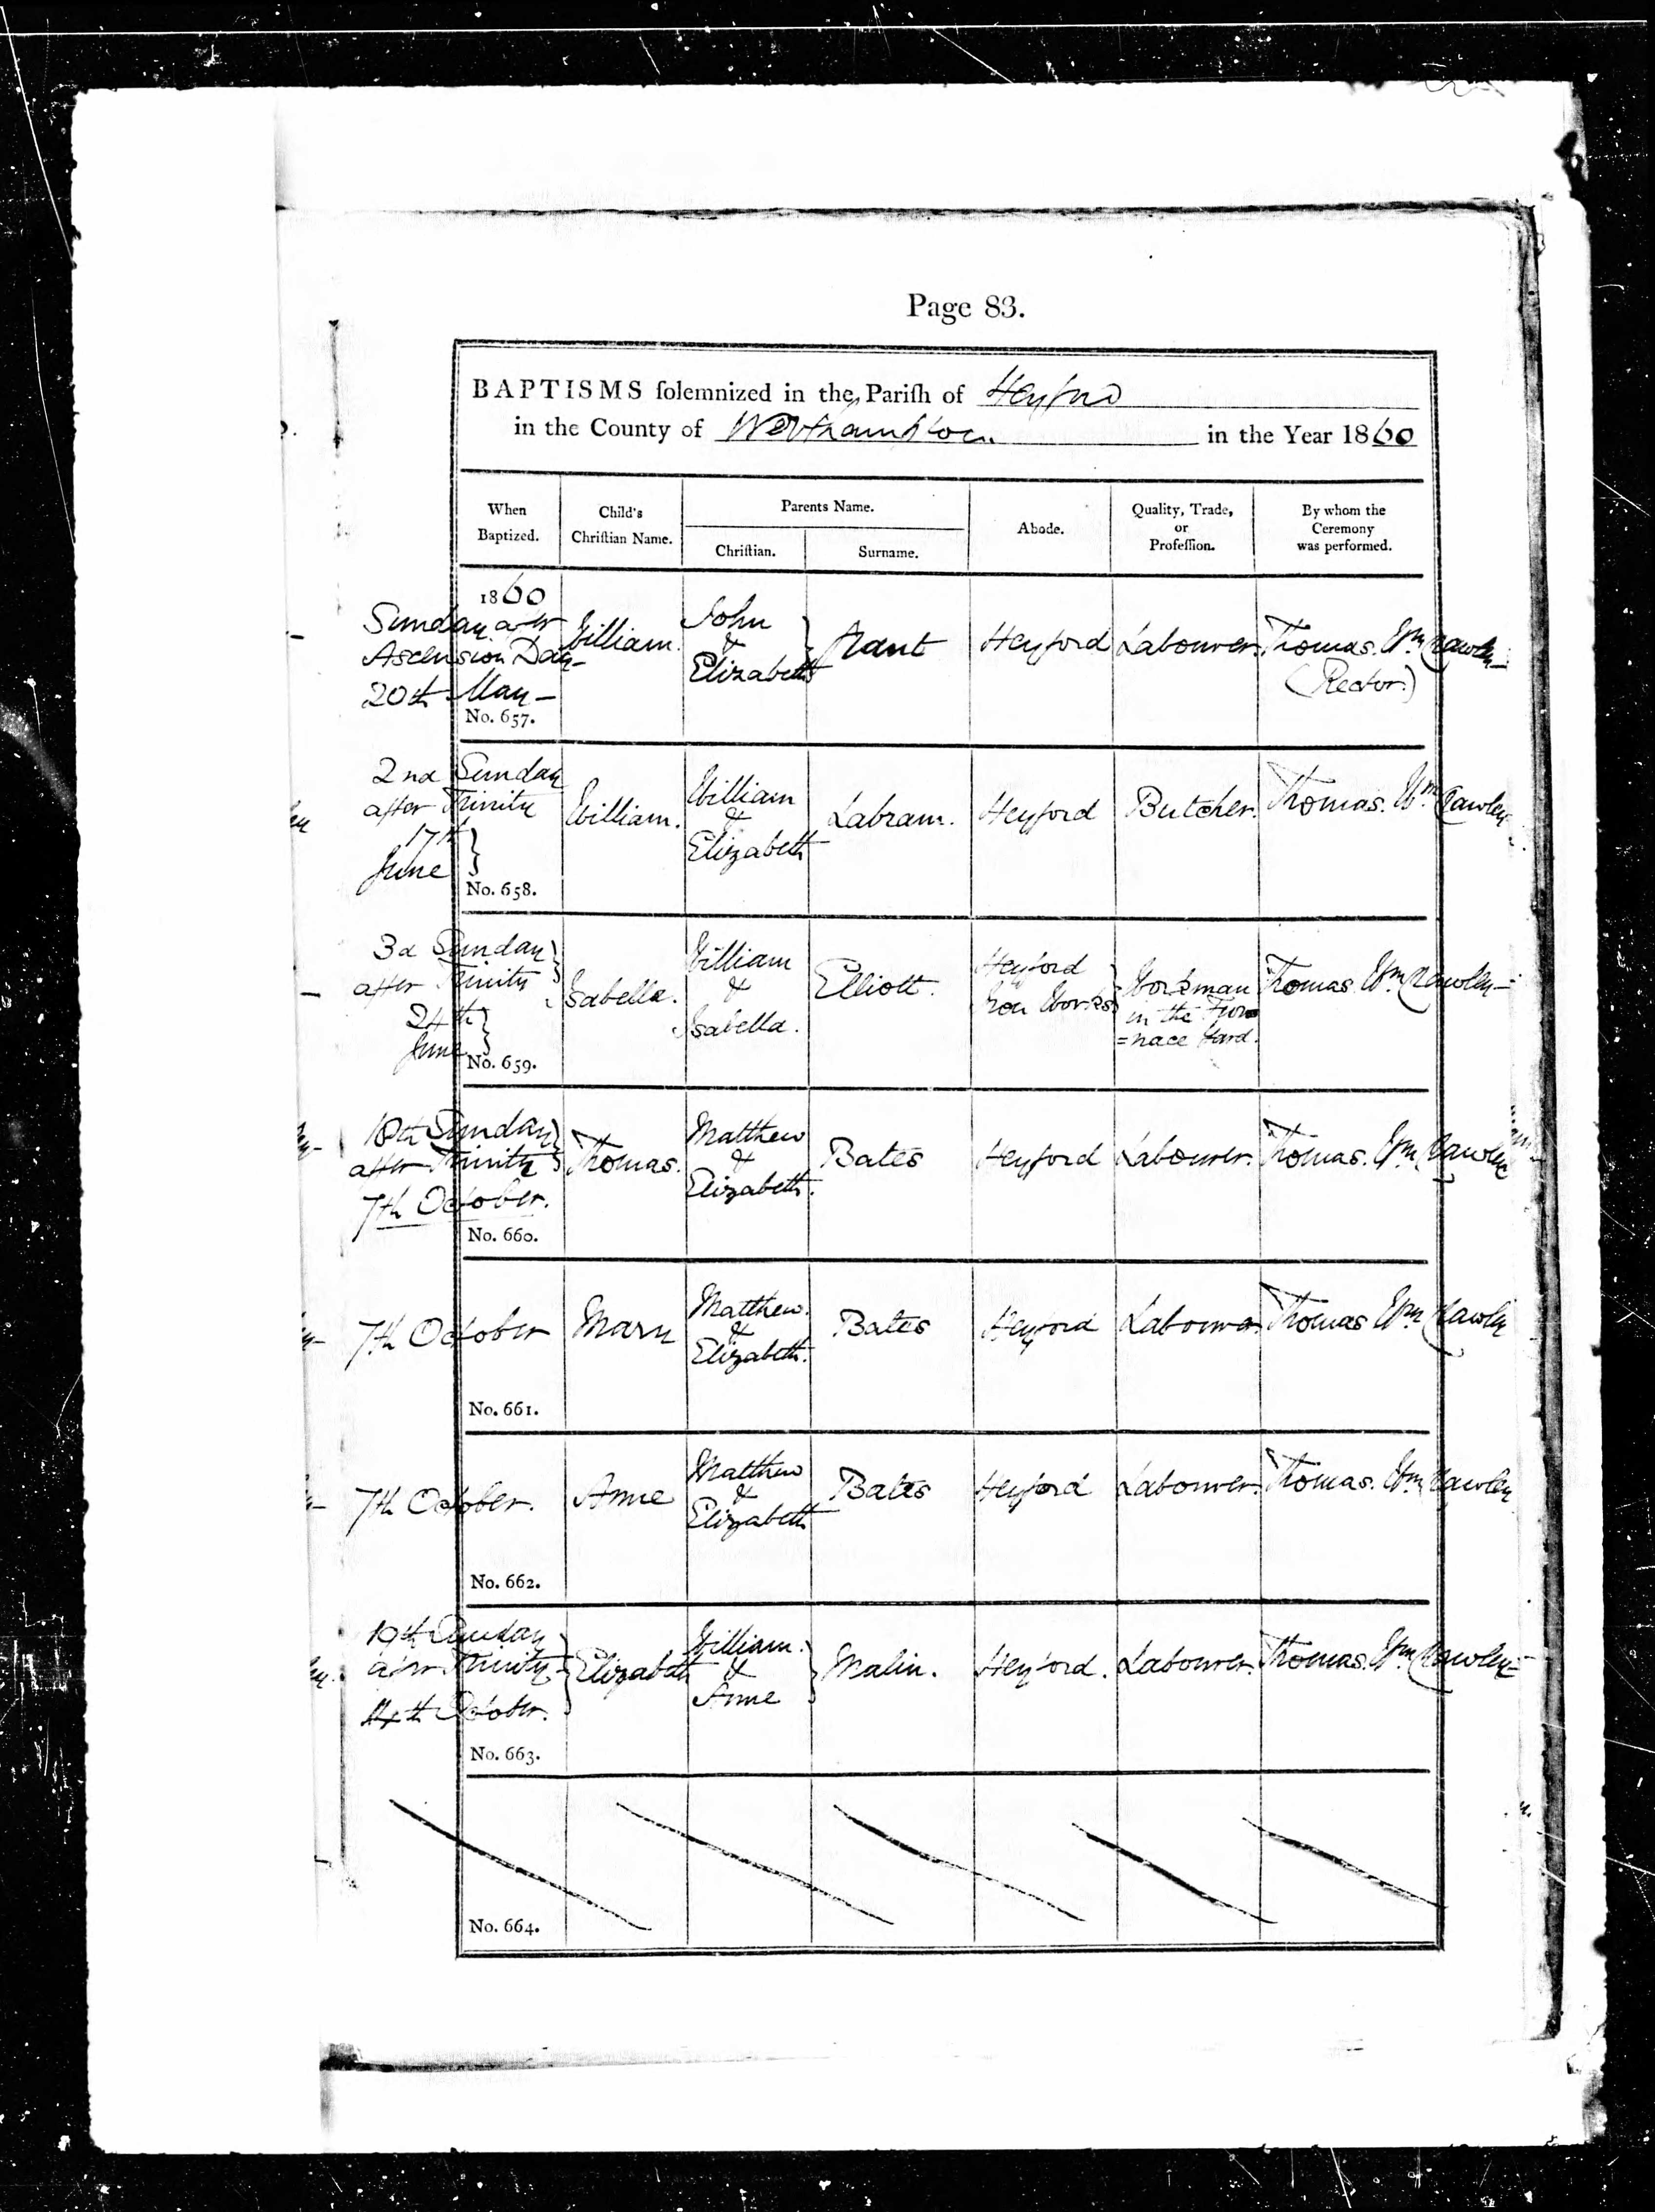 Page 83.
BAPTISMS ſolemnized in the Pariſh of Heyford
in the County of Northampton in the Year 1860
When Baptized.
Child's Chriſtian Name.
Parents Name.
Chriſtian.
Surname.
Abode.
Quality, Trade, or Profeſſion.
By whom the Ceremony was performed.
1860
Sunday after
Ascension Day
20th May
No. 657.
William.
John
&
Elizabeth
Heyford
Labourer.
Thomas. Wm Crawley
(Rector.)
2nd Sunday
after Trinity
17th
June
No. 658.
William.
William
&
Elizabeth
Labram.
Heyford
Butcher.
Thomas. Wm. Crawley
3d Sunday
after Trinity
24th
June
No. 659.
Isabella.
William
&
Isabella.
Elliott.
Heyford
Iron Works
Worksman
in the Fur
=nace Yard.
Thomas Wm Crawley
18th Sunday
after Trinity
7th October.
No. 660.
Thomas.
Matthew
&
Elizabeth.
Bates
Heyford
Labourer.
Thomas. Wm Crawley
7th October
No. 661.
Mary
Matthew.
&
Elizabeth.
Bates
Heyford
Labourer
Thomas Wm Crawley
7th October.
No. 662.
Anne
Matthew
&
Elizabeth
Bates
Heyford
Labourer.
Thomas. Wm Crawley
19th Sunday
after Trinity
14th October.
No. 663.
Elizabeth
William.
&
Anne
Malin.
Heyford.
Labourer.
Thomas. Wm Crawley
No. 664.